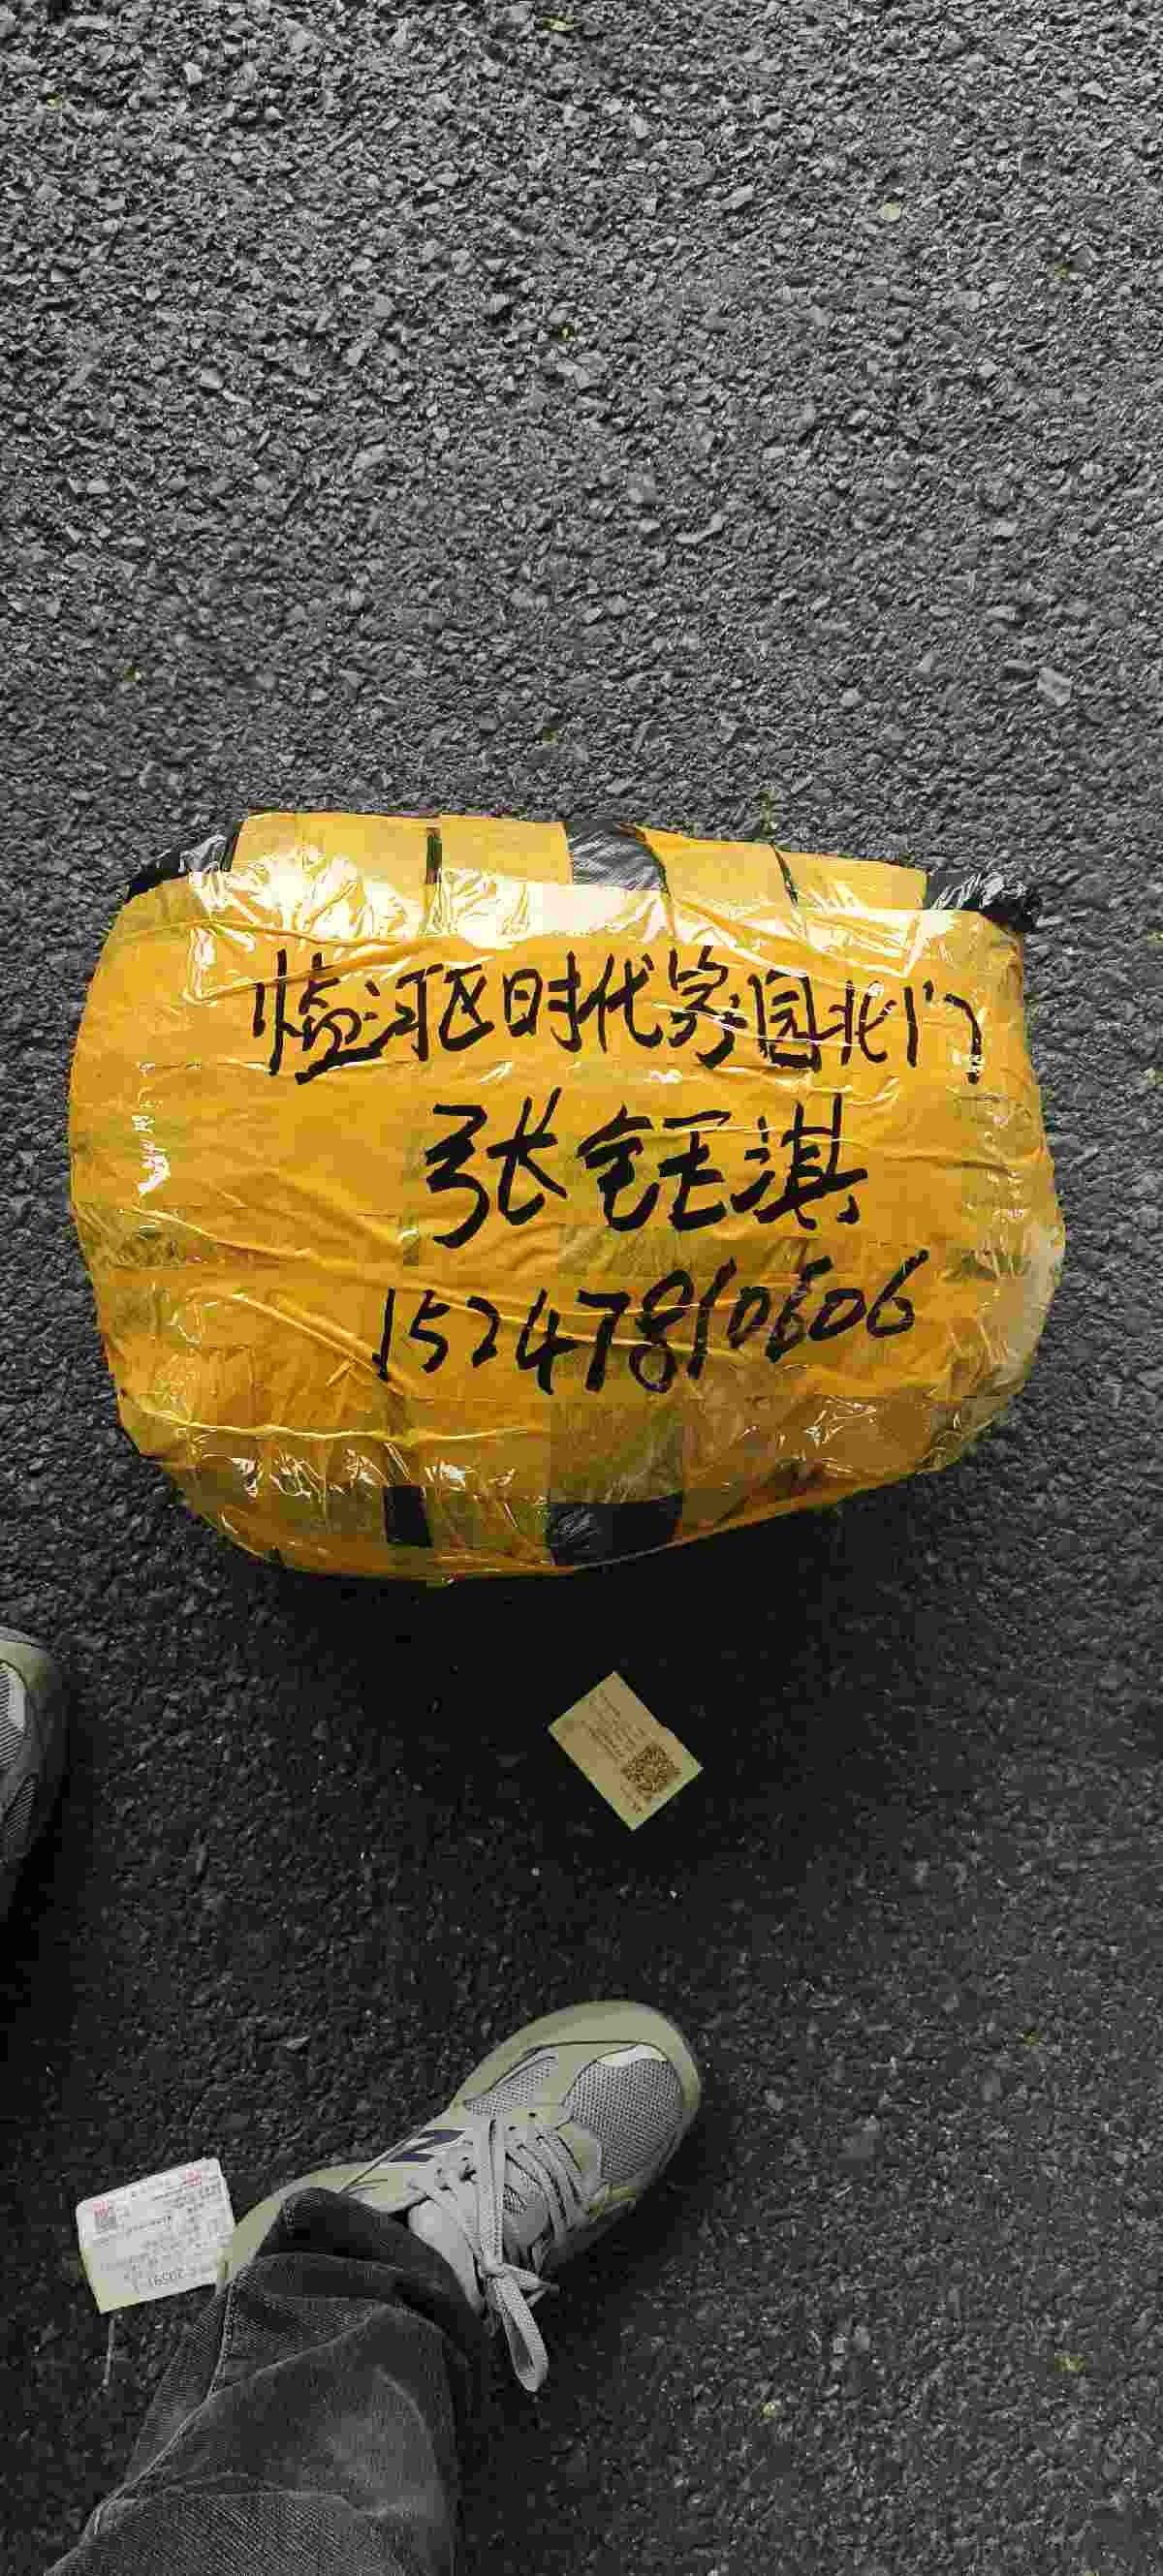 临河区时代家园北门
张钰淇
15247810606